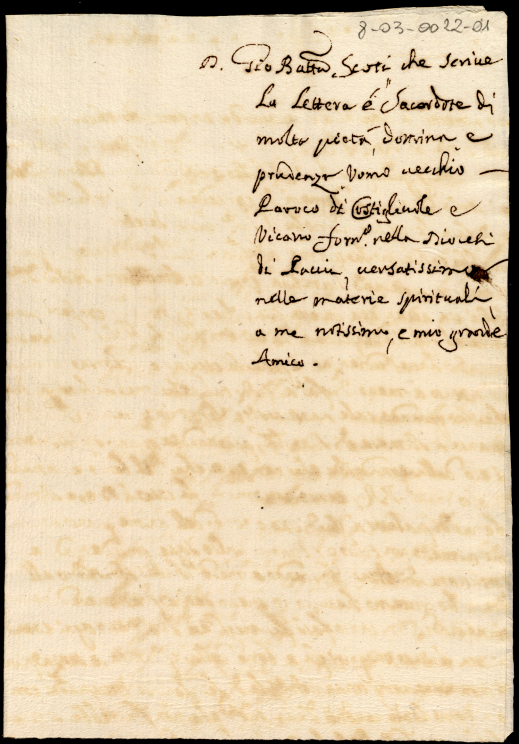 8-03-0022-01
D. Gio Batta Scoti che scrive
La Lettera è Sacerdote di
molta pietà, dottrina e
prudenza Vomo vecchio
Paroco di Costigliuole e
Vicario for.º nella Diocesi
di Pavia, versatissimo
nelle materie spirituali,
a me notissimo, e mio grande
Amico.